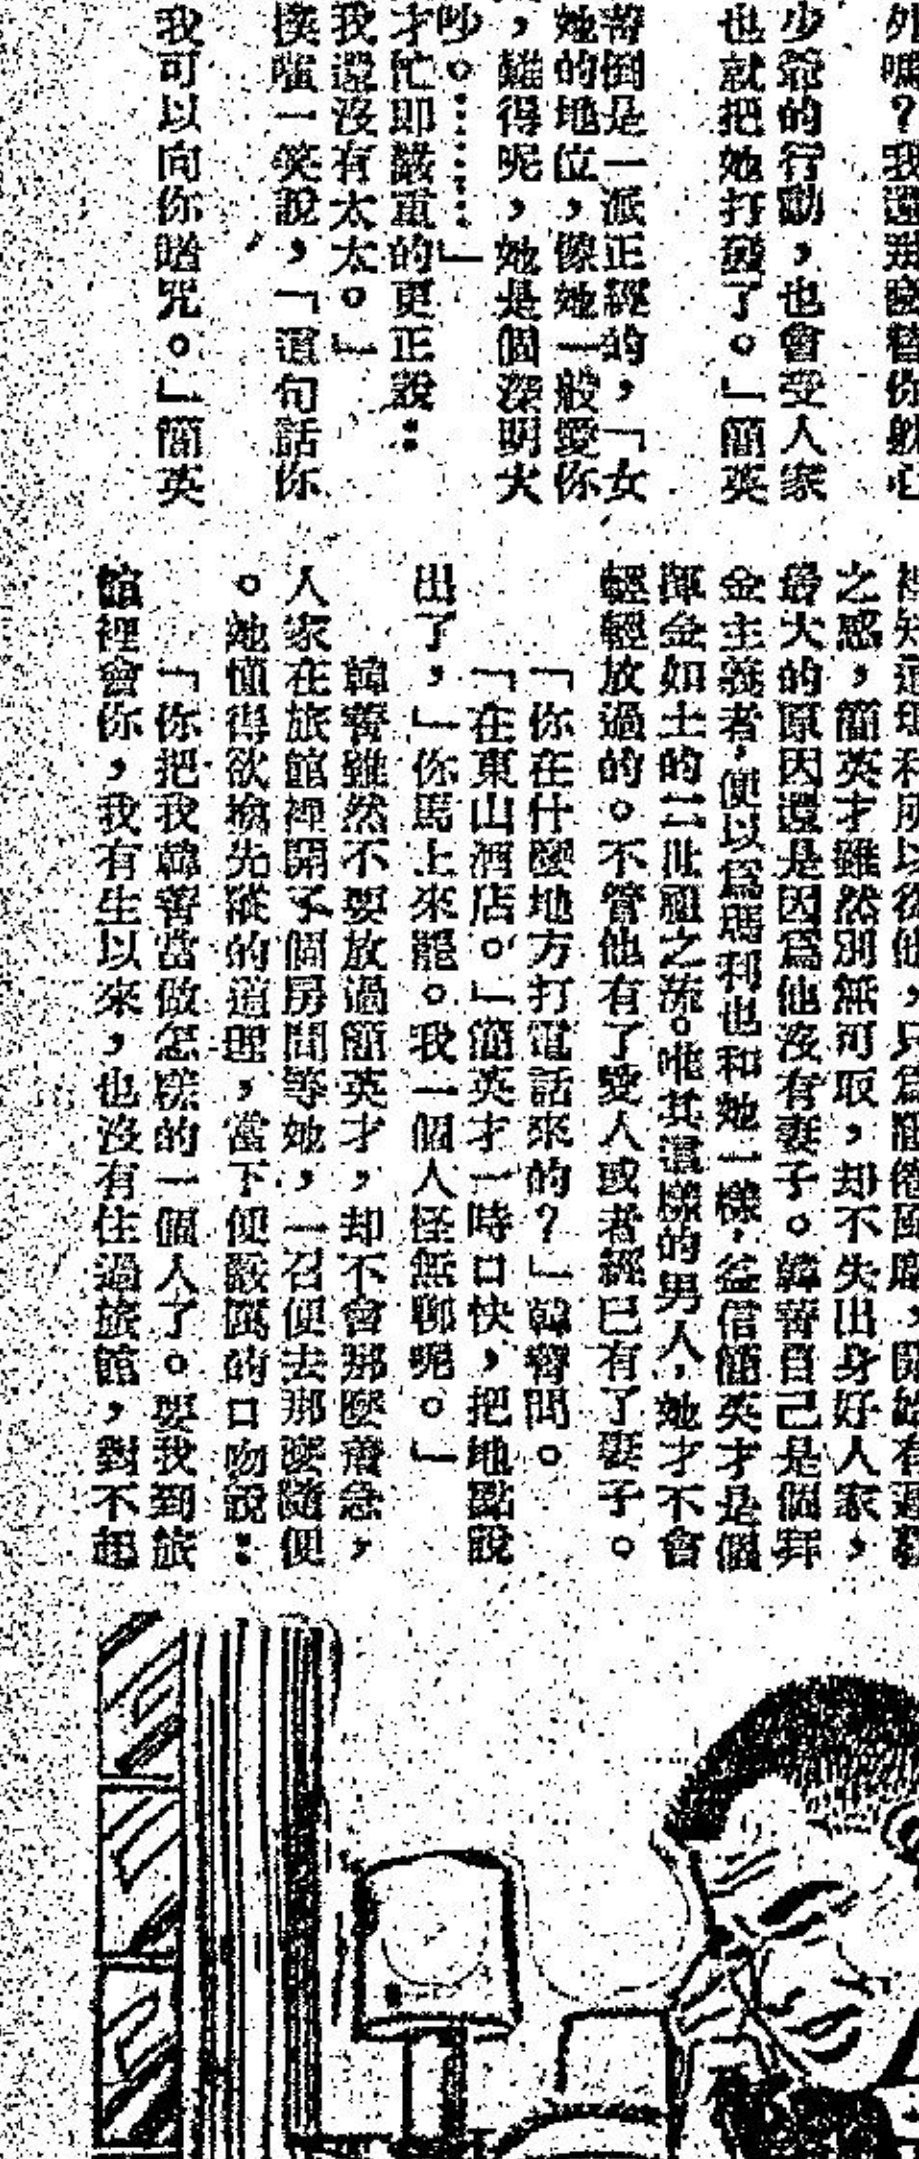 少爺的行動，也會受人家
也就把她打發了。」簡英
菁倒是一派正經的，「女
她的地位，像她一般愛你
，難得呢，她是個深明大
吵。………」
才忙即嚴重的更正說：
我還沒有太太。」
噗嗤一笑說，「這句話你
我可以向你賭咒。」簡英
之感，簡英才雖然別無可取，却不失出身好人家，
最大的原因還是因爲他沒有妻子。韓菁自己是個拜
金主義者，便以爲瑪利也和她一樣，益信簡英才是個
揮金如土的二世祖之流。唯其這樣的男人，她才不會
輕輕放過的。不管他有了愛人或者經已有了妻子。
「你在什麼地方打電話來的？」韓菁問。
「在東山酒店。」簡英才一時口快，把地點說
出了，」你馬上來罷。我一個人怪無聊呢。」
韓菁雖然不要放過簡英才，却不會那麼着急，
人家在旅館裡開了個房間等她，一召便去那麼隨便
。她懂得欲擒先縱的道理，當下便嚴厲的口吻說：
「你把我韓菁當做怎樣的一個人了。要我到旅
館裡會你，我有生以來，也沒有住過旅館，對不起